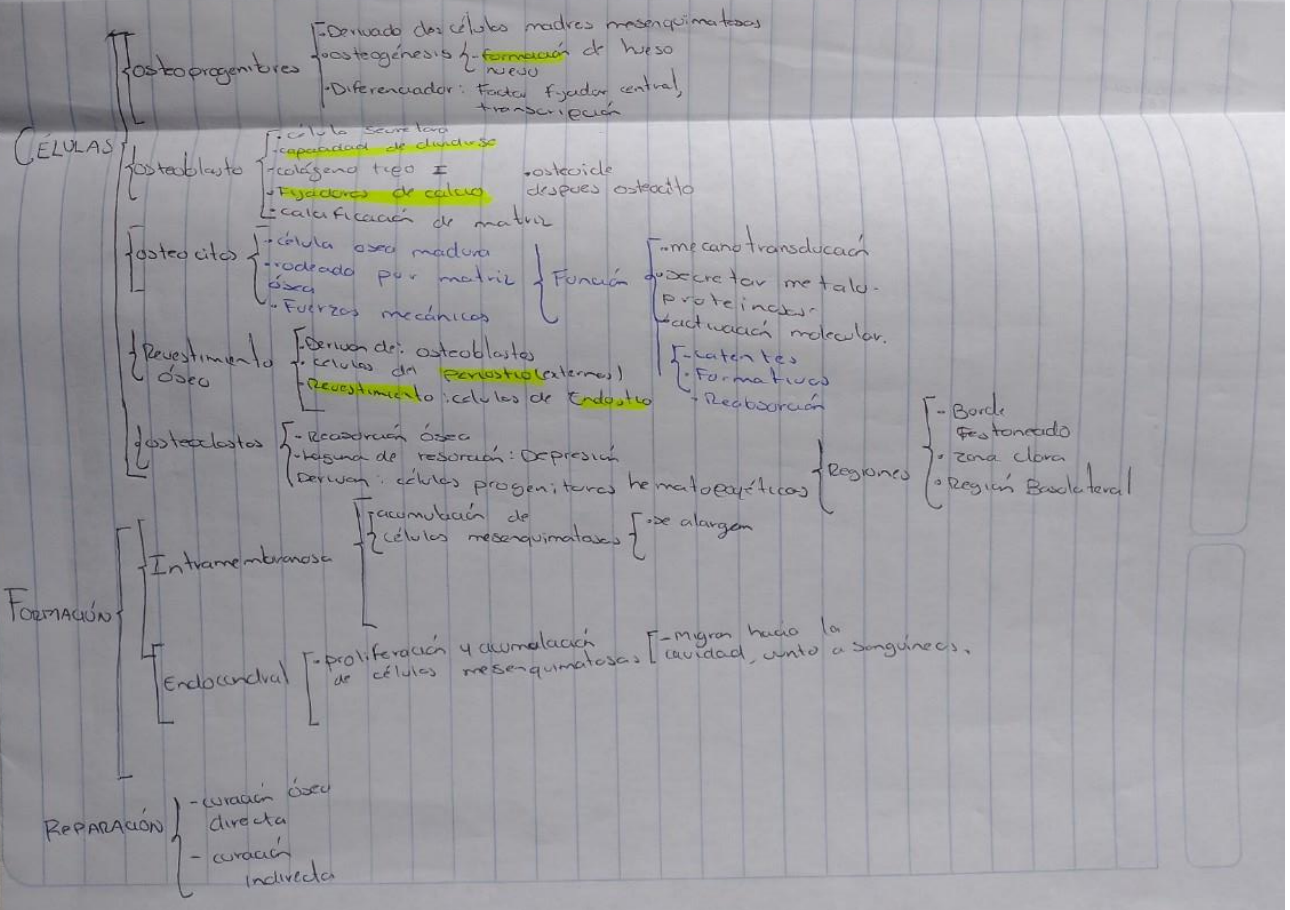 CÉLULAS
osteoprogenitores
-Derivado des células madres mesenquimatosas
-osteogénesis -formación de hueso
nuevo
-Diferenciador: Factor fijador central,
transcripción
osteoblasto
-célula secretora
-capacidad de dividirse
-colágeno tipo I
-Fijadores de calcio
-calcificación de matriz
•osteoide
despues osteocito
osteocitos
-célula osea madura
-rodeado por matriz
ósea
-Fuerzas mecánicas
Función
-mecanotransducación
-secretar metalo-
proteinasas-
-activación molecular.
-Latentes
-Formativos
-Reabsorción
Revestimiento
óseo
-Derivan de: osteoblastos
-células del periostio (externas)
-Revestimiento: células de Endostio
osteoclastos
-Reabsorción ósea
-Laguna de resorción: Depresión
Derivan: células progenitoras hematopoyéticas
Regiones
-Borde
Festoneado
• zona clara
• Región Basolateral
FORMACIÓN
Intramembranosa
acumulación de
células mesenquimatosas
-se alargan
Endocondral
-proliferación y acumulación
de células mesenquimatosas
-migran hacia la
cavidad, junto a sanguíneos.
REPARACIÓN
-curación ósea
directa
-curación
indirecta